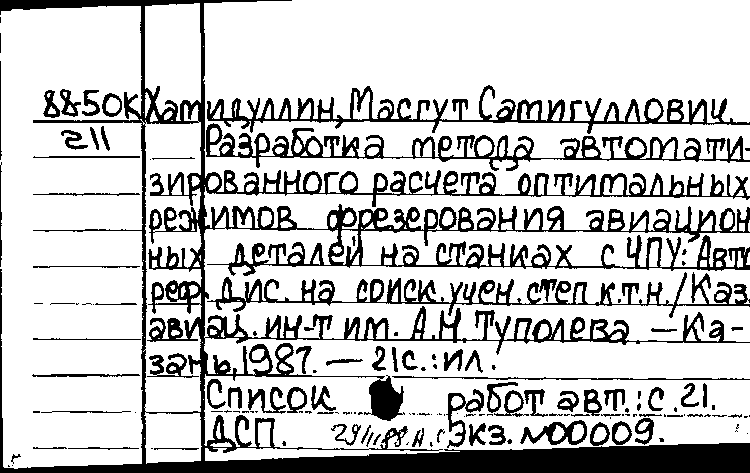 88-50К Хамидуллин, Масгут Самигуллович.
211 Разработка метода автомати-
зированного расчета оптимальных
режимов фрезерования авиацион
ных деталей на станках с ЧПУ: Авто
реф. Дис. на соиск. учен. степ к.т.н. / Каз.
авиац. ин-т им. А.Н. Туполева. — Ка-
зань, 1987. — 21 с. : ил.
Список работ авт.: с. 21.
ДСП. Экз. №00009.